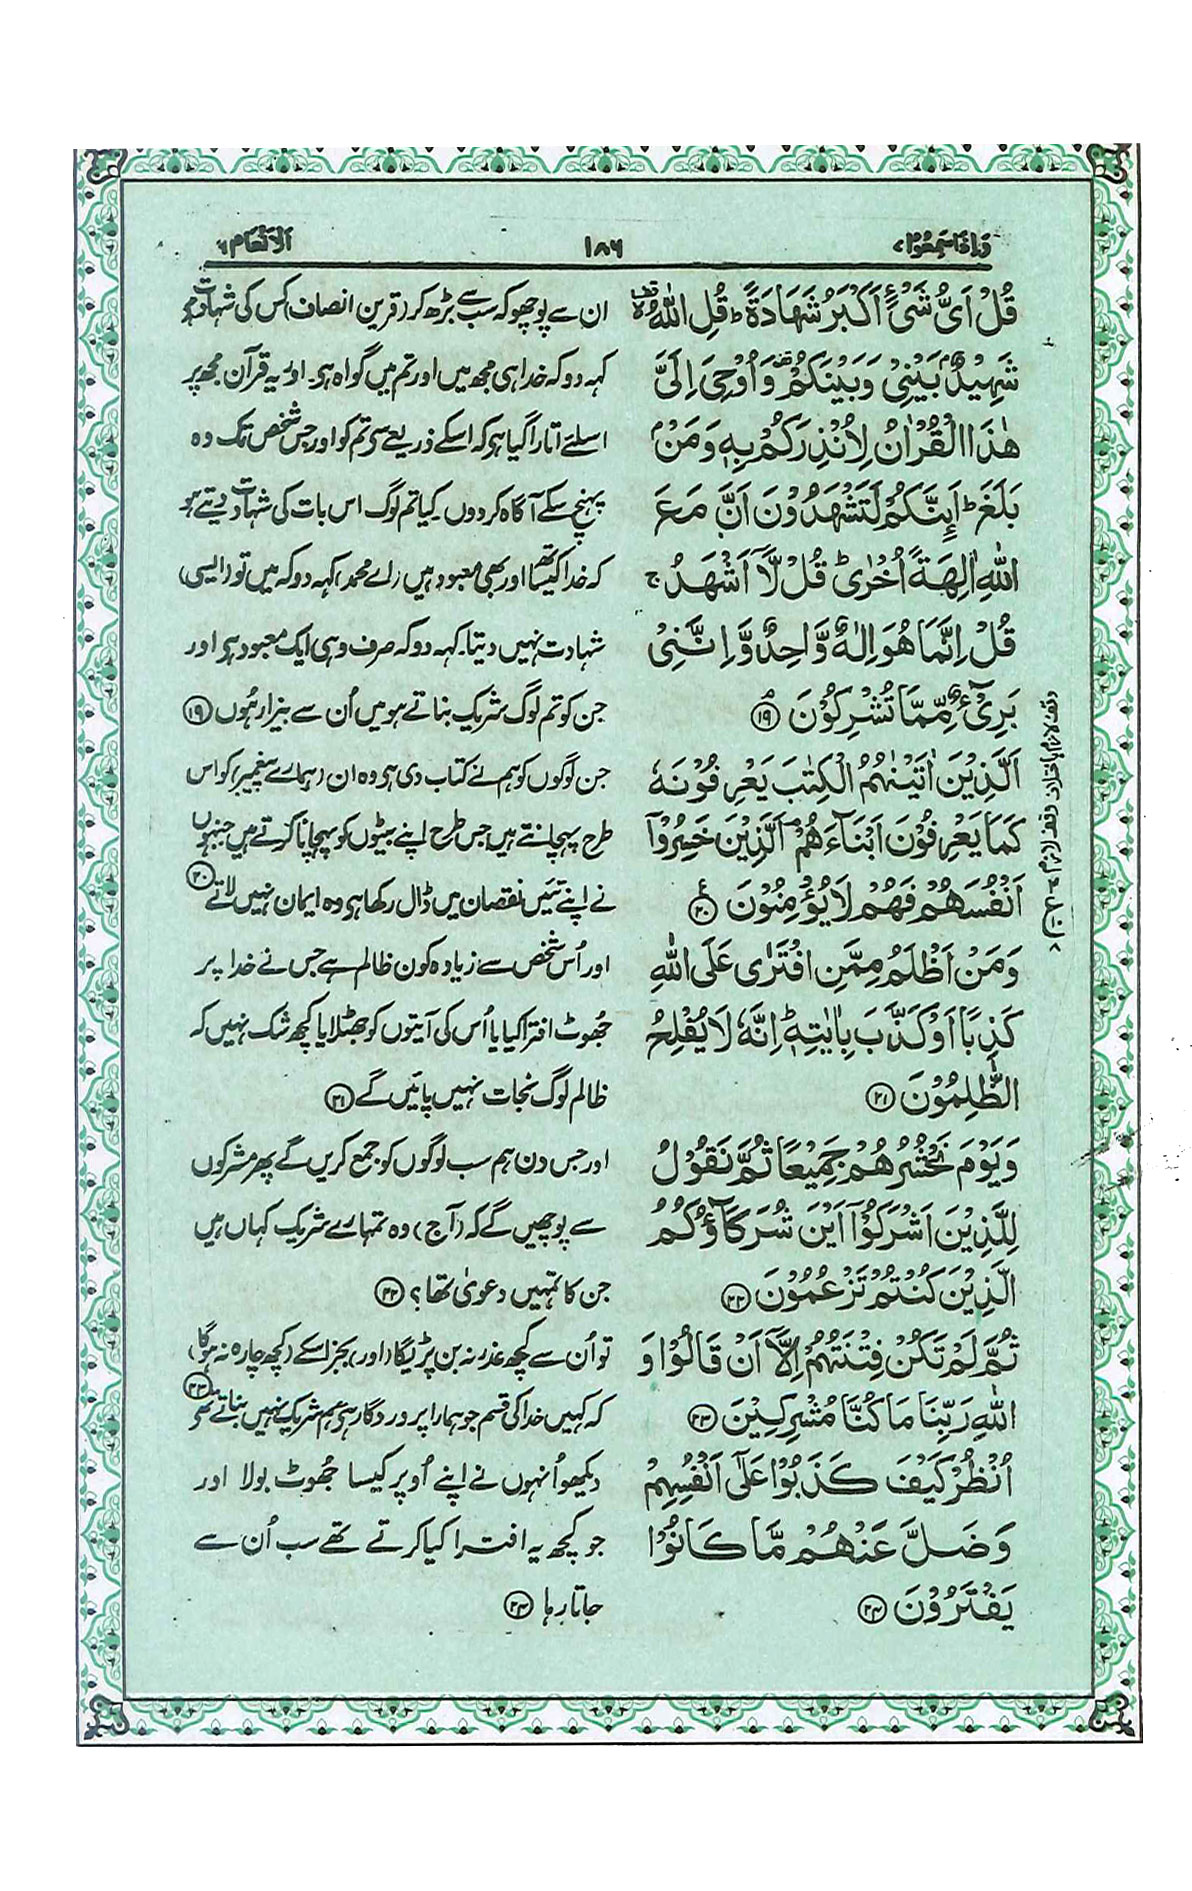 وَاِذَا سَمِعُوْا ۷
۱۸۶
اَلْاَنْعَام ۶
قُلْ اَیُّ شَیْءٍ اَکْبَرُ شَهَادَةً ؕ قُلِ اللّٰهُ ۟ۙ
شَهِیْدٌۢ بَیْنِیْ وَبَیْنَکُمْ ۟ وَاُوْحِیَ اِلَیَّ
هٰذَا الْقُرْاٰنُ لِاُنْذِرَکُمْ بِهٖ وَمَنْۢ
بَلَغَ ؕ اَئِنَّکُمْ لَتَشْهَدُوْنَ اَنَّ مَعَ
اللّٰهِ اٰلِهَةً اُخْرٰی ؕ قُلْ لَّاۤ اَشْهَدُ ۚ
قُلْ اِنَّمَا هُوَ اِلٰهٌ وَّاحِدٌ وَّاِنَّنِیْ
بَرِیْٓءٌ مِّمَّا تُشْرِکُوْنَ ۘ ۱۹
اَلَّذِیْنَ اٰتَیْنٰهُمُ الْکِتٰبَ یَعْرِفُوْنَهٗ
کَمَا یَعْرِفُوْنَ اَبْنَآءَهُمْ ۘ اَلَّذِیْنَ خَسِرُوْۤا
اَنْفُسَهُمْ فَهُمْ لَا یُؤْمِنُوْنَ ۲۰ ع
وَمَنْ اَظْلَمُ مِمَّنِ افْتَرٰی عَلَی اللّٰهِ
کَذِبًا اَوْ کَذَّبَ بِاٰیٰتِهٖ ؕ اِنَّهٗ لَا یُفْلِحُ
الظّٰلِمُوْنَ ۲۱
وَیَوْمَ نَحْشُرُهُمْ جَمِیْعًا ثُمَّ نَقُوْلُ
لِلَّذِیْنَ اَشْرَکُوْۤا اَیْنَ شُرَکَآؤُکُمُ
الَّذِیْنَ کُنْتُمْ تَزْعُمُوْنَ ۲۲
ثُمَّ لَمْ تَکُنْ فِتْنَتُهُمْ اِلَّاۤ اَنْ قَالُوْا وَ
اللّٰهِ رَبِّنَا مَا کُنَّا مُشْرِکِیْنَ ۲۳
اُنْظُرْ کَیْفَ کَذَبُوْا عَلٰۤی اَنْفُسِهِمْ
وَضَلَّ عَنْهُمْ مَّا کَانُوْا
یَفْتَرُوْنَ ۲۴
ان سے پوچھو کہ سب سے بڑھ کر (قرین انصاف) کس کی شہادت ہے
کہہ دو کہ خدا ہی مجھ میں اور تم میں گواہ ہے۔ اور یہ قرآن مجھ پر
اسلئے اتارا گیا ہے کہ اسکے ذریعے سے تم کو اور جس شخص تک وہ
پہنچ سکے آگاہ کر دوں۔ کیا تم لوگ اس بات کی شہادت دیتے ہو
کہ خدا کیساتھ اور بھی معبود ہیں (اے محمد) کہہ دو کہ میں تو (ایسی)
شہادت نہیں دیتا۔ کہہ دو کہ صرف وہی ایک معبود ہے اور
جن کو تم لوگ شریک بناتے ہو میں اُن سے بیزار ہُوں ۱۹
جن لوگوں کو ہم نے کتاب دی ہے وہ ان (ہمارے پیغمبر) کو اس
طرح پہچانتے ہیں جس طرح اپنے بیٹوں کو پہچانا کرتے ہیں جنہوں
نے اپنے تئیں نقصان میں ڈال رکھا ہے وہ ایمان نہیں لاتے ۲۰
اور اُس شخص سے زیادہ کون ظالم ہے جس نے خدا پر
جُھوٹ افترا کیا یا اُس کی آیتوں کو جھٹلایا کچھ شک نہیں کہ
ظالم لوگ نجات نہیں پائیں گے ۲۱
اور جس دن ہم سب لوگوں کو جمع کریں گے پھر مشرکوں
سے پوچھیں گے کہ (آج) وہ تمہارے شریک کہاں ہیں
جن کا تمہیں دعویٰ تھا؟ ۲۲
تو اُن سے کچھ عذر نہ بن پڑیگا (اور) بجز اسکے (کچھ چارہ نہ ہوگا)
کہ کہیں خدا کی قسم جو ہمارا پروردگار ہے ہم شریک نہیں بناتے تھے ۲۳
دیکھو اُنہوں نے اپنے اُوپر کیسا جُھوٹ بولا اور
جو کچھ یہ افترا کیا کرتے تھے سب اُن سے
جاتا رہا ۲۴